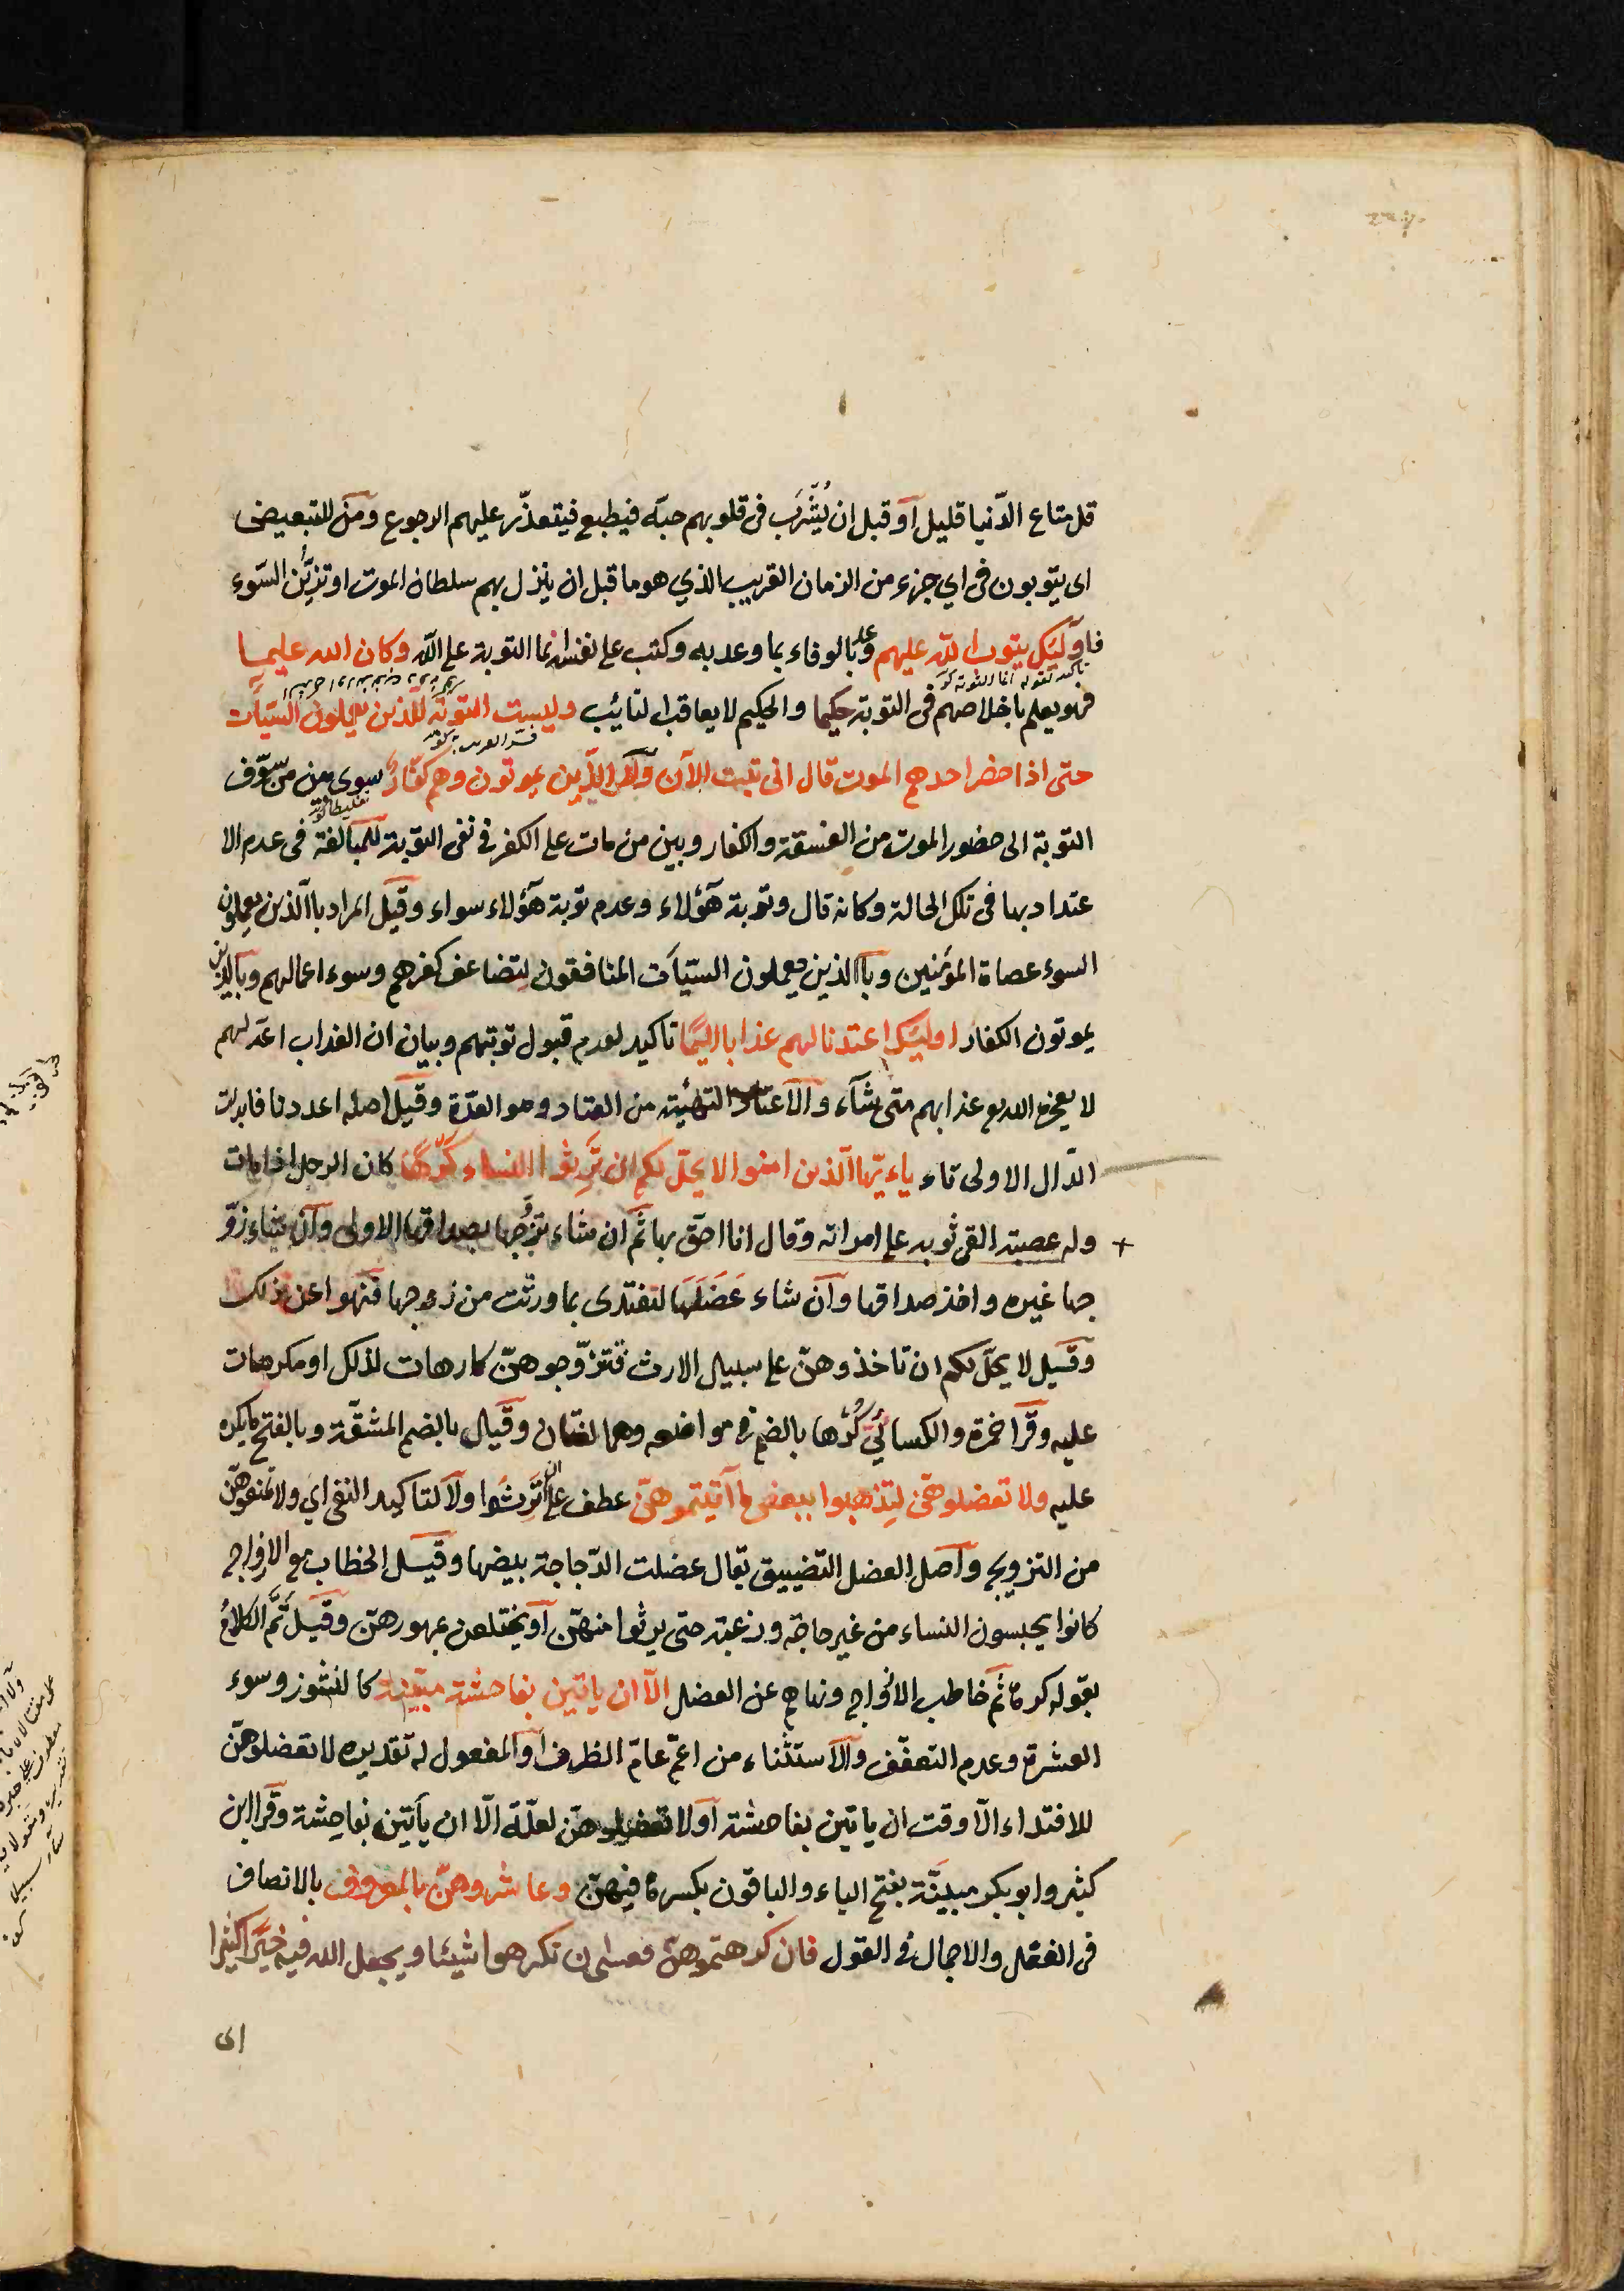 قل متاع الدّنيا قليل أو قبل ان يُشْرَب فى قلوبهم حبّه فيطبع فيتعذّر عليهم الرجوع ومن للتبعيض
اى يتوبون فى اي جزء من الزمان القريب الذي هو ما قبل ان ينزل بهم سلطان الموت او تزيّن السّوء
فاولئك يتوب الله عليهم وعد بالوفاء بما وعد به وكتب على نفسه انما التوبة على الله وكان الله عليما
تاكيد لقوله انما التوبة
فهو يعلم باخلاصهم فى التوبة حكيما والحكيم لا يعاقب التائب وليست التوبة للذين يعملون السيّآت
حتى اذا حضر احدهم الموت قال انى تبت الآن ولا الذين يموتون وهم كفّار سوى بين من سوّف
التوبة الى حضور الموت من الفسقة والكفار وبين من مات على الكفر فى نفى التوبة للمبالغة فى عدم الا
عتداد بها فى تلك الحالة وكانه قال وتوبة هؤلاء وعدم توبة هؤلاء سواء وقيل المراد بالذين يعملون
السوء عصاة المؤمنين وبالذين يعملون السيّآت المنافقون لتضاعف كفرهم وسوء اعمالهم وبالذين
يموتون الكفار اولئك اعتدنا لهم عذابا اليمًا تاكيد لعدم قبول توبتهم وبيان ان العذاب اعدّ لهم
لا يعجزه عذابهم متى شاء والاعتاد التهيئة من العتاد وهو العدّة وقيل اصله اعددنا فابدلت
الدّال الاولى تاء ياءيّها الّذين امنوا لا يحلّ لكم ان ترثوا النساء كرها كان الرجل اذا مات
وله عصبة القى ثوبه على امراته وقال انا احقّ بها ثم ان شاء تزوّجها بصداقها الاولى وان شاء زوّ
جها غيره واخذ صداقها وان شاء عَضَلَهَا لتفتدى بما ورثت من زوجها فنهوا عن ذلك
وقيل لا يحلّ لكم ان تاخذوهنّ على سبيل الارث فتتزوّجوهنّ كارهات لذلك او مكرهات
عليه وقرا حمزة والكسائى كُرْها بالضم فى مواضعه وهما لغتان وقيل بالضم المشقّة وبالفتح ما يكره
عليه ولا تعضلوهنّ لتذهبوا ببعض ما آتيتموهنّ عطف على ان ترثوا ولا لتاكيد النفى اي ولا تمنعوهنّ
من التزويج واصل العضل التضييق يقال عضلت الدّجاجة ببيضها وقيل الخطاب مع الازواج
كانوا يحبسون النساء من غير حاجة ورغبة حتى يرثوا منهنّ او يختلعن بمهورهنّ وقيل تَمَّ الكلامُ
بقوله كرها ثم خاطب الازواج ونهاهم عن العضل الّا ان ياتين بفاحشة مبيّنة كالنشوز وسوء
العشرة وعدم التعفّف والاستثناء من اعمّ عامّ الظرف او المفعول له تقديره لا تعضلوهنّ
للافتداء الّا وقت ان ياتين بفاحشة او لا تعضلوهنّ لعلّة الّا ان ياتين بفاحشة وقرا ابن
كثير وابو بكر مبيَّنة بفتح الياء والباقون بكسرها فيهنّ وعاشروهنّ بالمعروف بالانصاف
فى الفعل والاجمال فى القول فان كرهتموهنّ فعسى ان تكرهوا شيئا ويجعل الله فيه خيرا كثيرا
اى